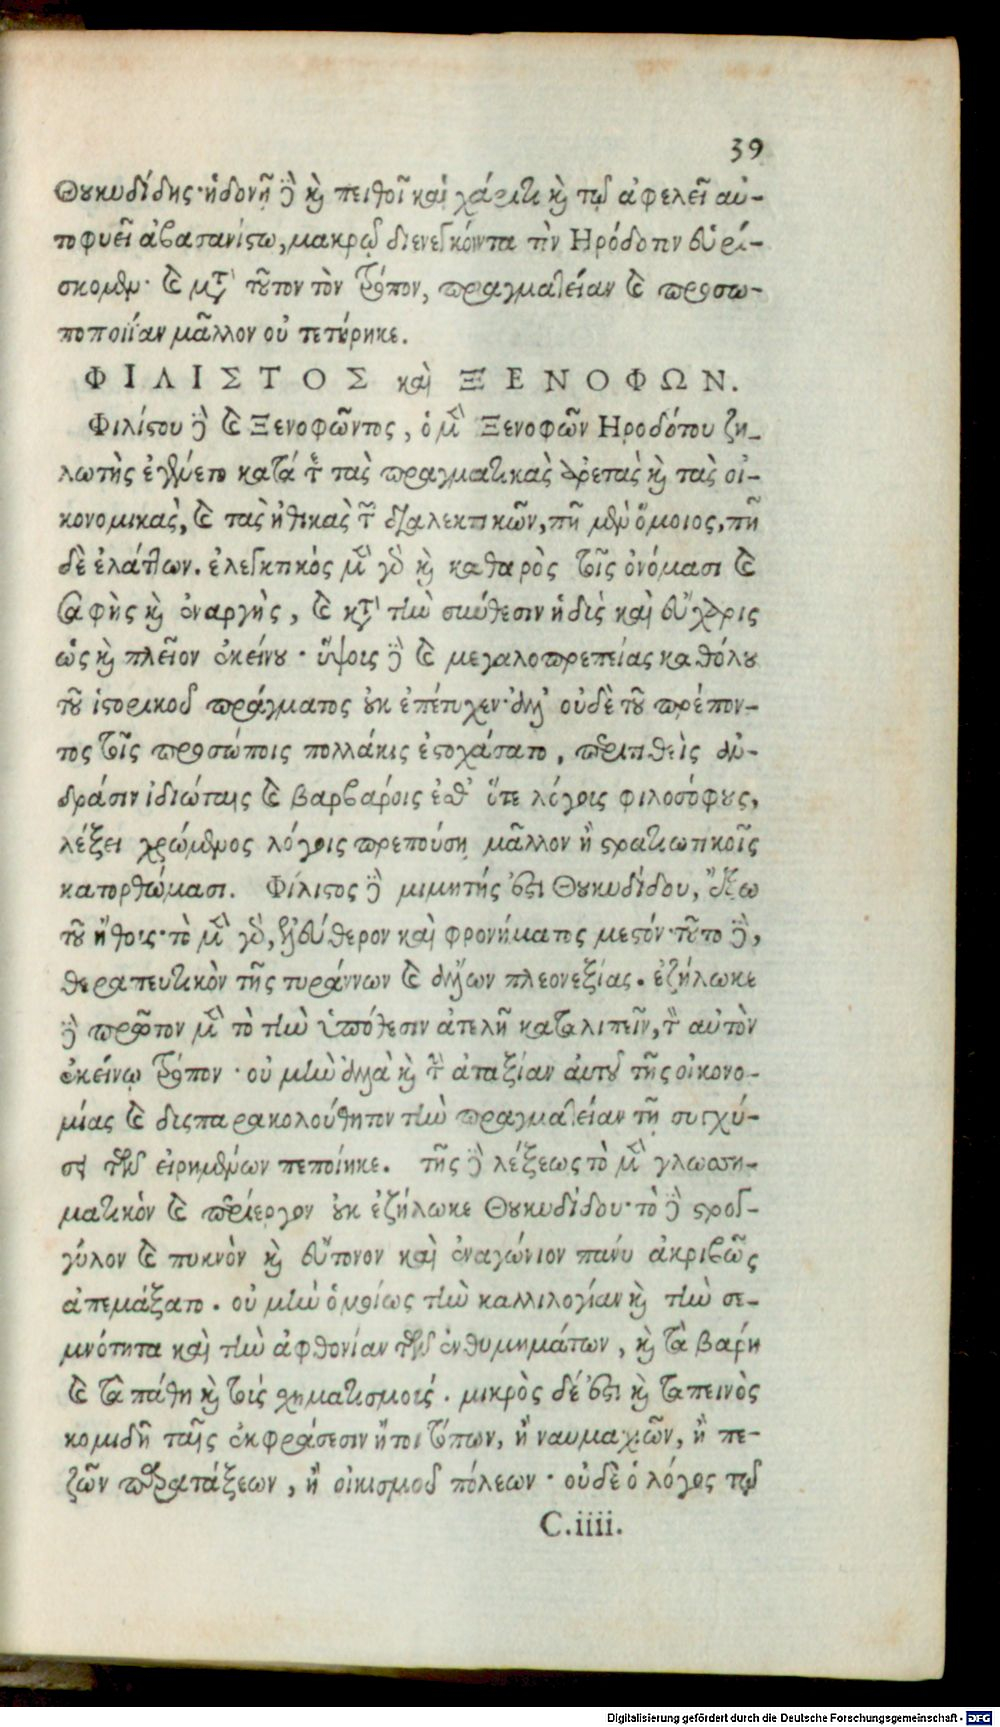 39
Θουκυδίδης· ἡδονῇ δὲ καὶ πειθοῖ καὶ χάριτι καὶ τῷ ἀφελεῖ αὐ-
τοφυεῖ ἀβασανίστῳ, μακρῷ διενεγκόντα τὸν Ἡρόδοτον εὑρί-
σκομεν· καὶ μετὰ τοῦτον τὸν τρόπον, πραγματείαν καὶ προσω-
ποποιΐαν μᾶλλον οὐ τετήρηκε.
ΦΙΛΙΣΤΟΣ καὶ ΞΕΝΟΦΩΝ.
Φιλίστου δὲ καὶ Ξενοφῶντος, ὁ μὲν Ξενοφῶν Ἡροδότου ζη-
λωτὴς ἐγένετο κατά τε τὰς πραγματικὰς ἀρετὰς καὶ τὰς οἰ-
κονομικὰς, καὶ τὰς ἠθικὰς τῶν διαλεκτικῶν, πῆ μὲν ὅμοιος, πῆ
δὲ ἐλάττων. ἐλεγκτικός μὲν γὰρ καὶ καθαρὸς τοῖς ὀνόμασι καὶ
σαφὴς καὶ ἐναργὴς, καὶ κατὰ τὴν σύνθεσιν ἡδὺς καὶ εὔχαρις
ὡς καὶ πλεῖον ἐκείνου· ὕψοις δὲ καὶ μεγαλοπρεπείας καθόλου
τοῦ ἱστορικοῦ πράγματος οὐκ ἐπέτυχεν· ἀλλ' οὐδὲ τοῦ πρέπον-
τος τοῖς προσώποις πολλάκις ἐστοχάσατο, περιτιθεὶς ἀν-
δράσιν ἰδιώταις καὶ βαρβάροις ἐσθ' ὅτε λόγοις φιλοσόφους,
λέξει χρώμενος λόγοις πρεπούσῃ μᾶλλον ἢ στρατιωτικοῖς
κατορθώμασι. Φίλιστος δὲ μιμητής ἐστι Θουκυδίδου, ἔξω
τοῦ ἤθους· τὸ μὲν γὰρ, ἐλεύθερον καὶ φρονήματος μεστόν· τοῦτο δὲ,
θεραπευτικὸν τῆς τυράννων καὶ ἄλλων πλεονεξίας. ἐζήλωκε
δὲ πρῶτον μὲν τὸ τὴν ὑπόθεσιν ἀτελῆ καταλιπεῖν, τὸν αὐτὸν
ἐκείνῳ τρόπον· οὐ μὴν ἀλλὰ καὶ τὴν ἀταξίαν αὐτοῦ τῆς οἰκονο-
μίας καὶ δυσπαρακολούθητον τὴν πραγματείαν τῇ συγχύ-
σει τῶν εἰρημένων πεποίηκε. τῆς δὲ λέξεως τὸ μὲν γλωσση-
ματικὸν καὶ περίεργον οὐκ ἐζήλωκε Θουκυδίδου· τὸ δὲ στρογ-
γύλον καὶ πυκνὸν καὶ εὔτονον καὶ ἐναγώνιον πάνυ ἀκριβῶς
ἀπεμάξατο. οὐ μὴν ὁμοίως τὴν καλλιλογίαν καὶ τὴν σε-
μνότητα καὶ τὴν ἀφθονίαν τῶν ἐνθυμημάτων, καὶ τὰ βάρη
καὶ τὰ πάθη καὶ τοὺς χηματισμούς. μικρὸς δέ ἐστι καὶ ταπεινὸς
κομιδῇ ταῖς ἐκφράσεσιν ἤτοι τόπων, ἢ ναυμαχιῶν, ἢ πε-
ζῶν παρατάξεων, ἢ οἰκισμοῦ πόλεων· οὐδὲ ὁ λόγος τῷ
C.iiii.
Digitalisierung gefördert durch die Deutsche Forschungsgemeinschaft - DFG